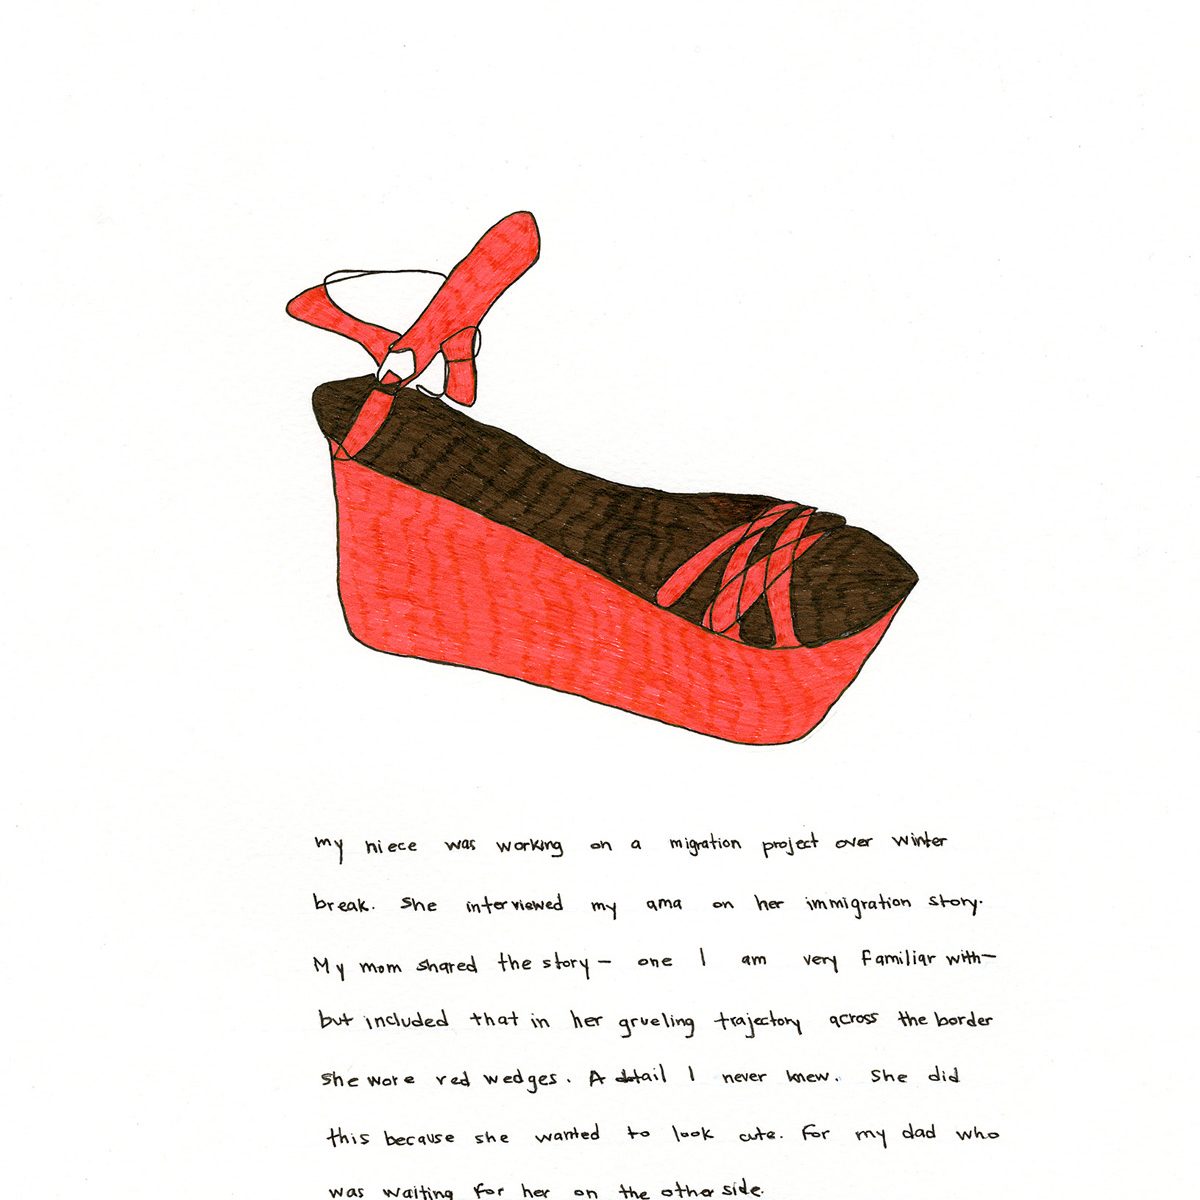 my niece was working on a migration project over winter
break. She interviewed my ama on her immigration story.
My mom shared the story— one I am very familiar with—
but included that in her grueling trajectory across the border
she wore red wedges. A detail I never knew. She did
this because she wanted to look cute. For my dad who
was waiting for her on the other side.